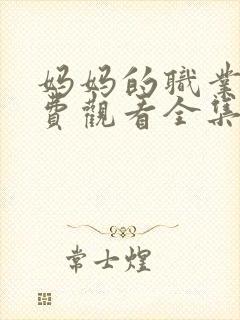 妈妈的職業
費觀看全集
常士煌